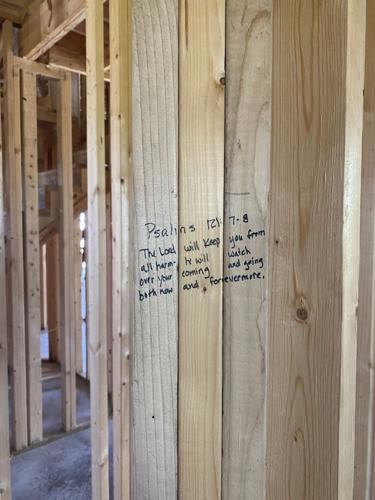 Psalms 121: 7-8
The Lord will keep you from
all harm- he will watch
over your coming and going
both now and forevermore.